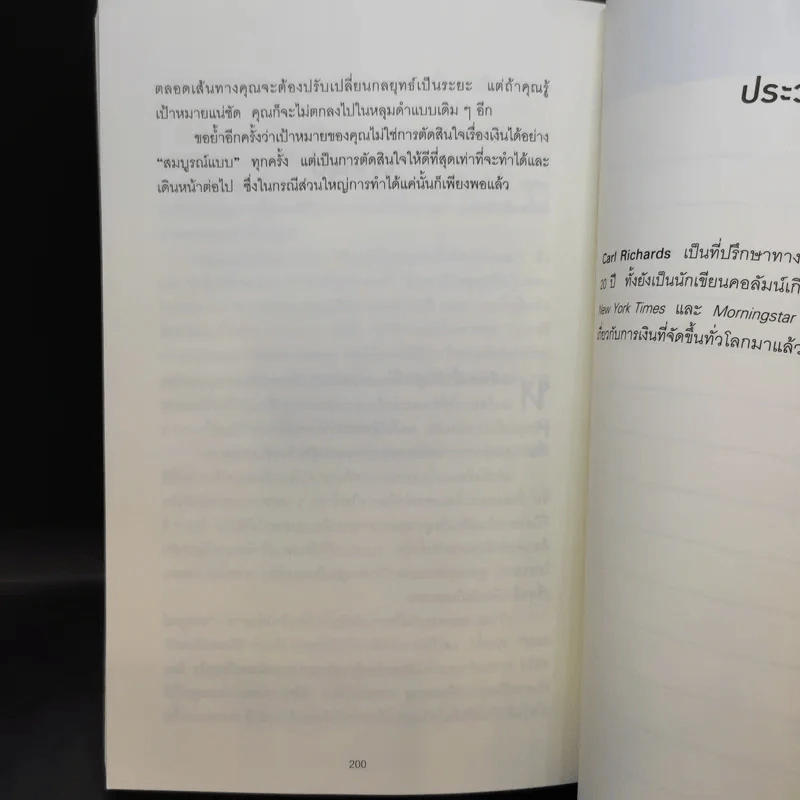 ตลอดเส้นทางคุณจะต้องปรับเปลี่ยนกลยุทธ์เป็นระยะ แต่ถ้าคุณรู้
เป้าหมายแน่ชัด คุณก็จะไม่ตกลงไปในหลุมดำแบบเดิม ๆ อีก
ขอย้ำอีกครั้งว่าเป้าหมายของคุณไม่ใช่การตัดสินใจเรื่องเงินได้อย่าง
“สมบูรณ์แบบ” ทุกครั้ง แต่เป็นการตัดสินใจให้ดีที่สุดเท่าที่จะทำได้และ
เดินหน้าต่อไป ซึ่งในกรณีส่วนใหญ่การทำได้แค่นั้นก็เพียงพอแล้ว
200
ประว
Carl Richards เป็นที่ปรึกษาทาง
20 ปี ทั้งยังเป็นนักเขียนคอลัมน์เกี
New York Times และ Morningstar
เกี่ยวกับการเงินที่จัดขึ้นทั่วโลกมาแล้ว